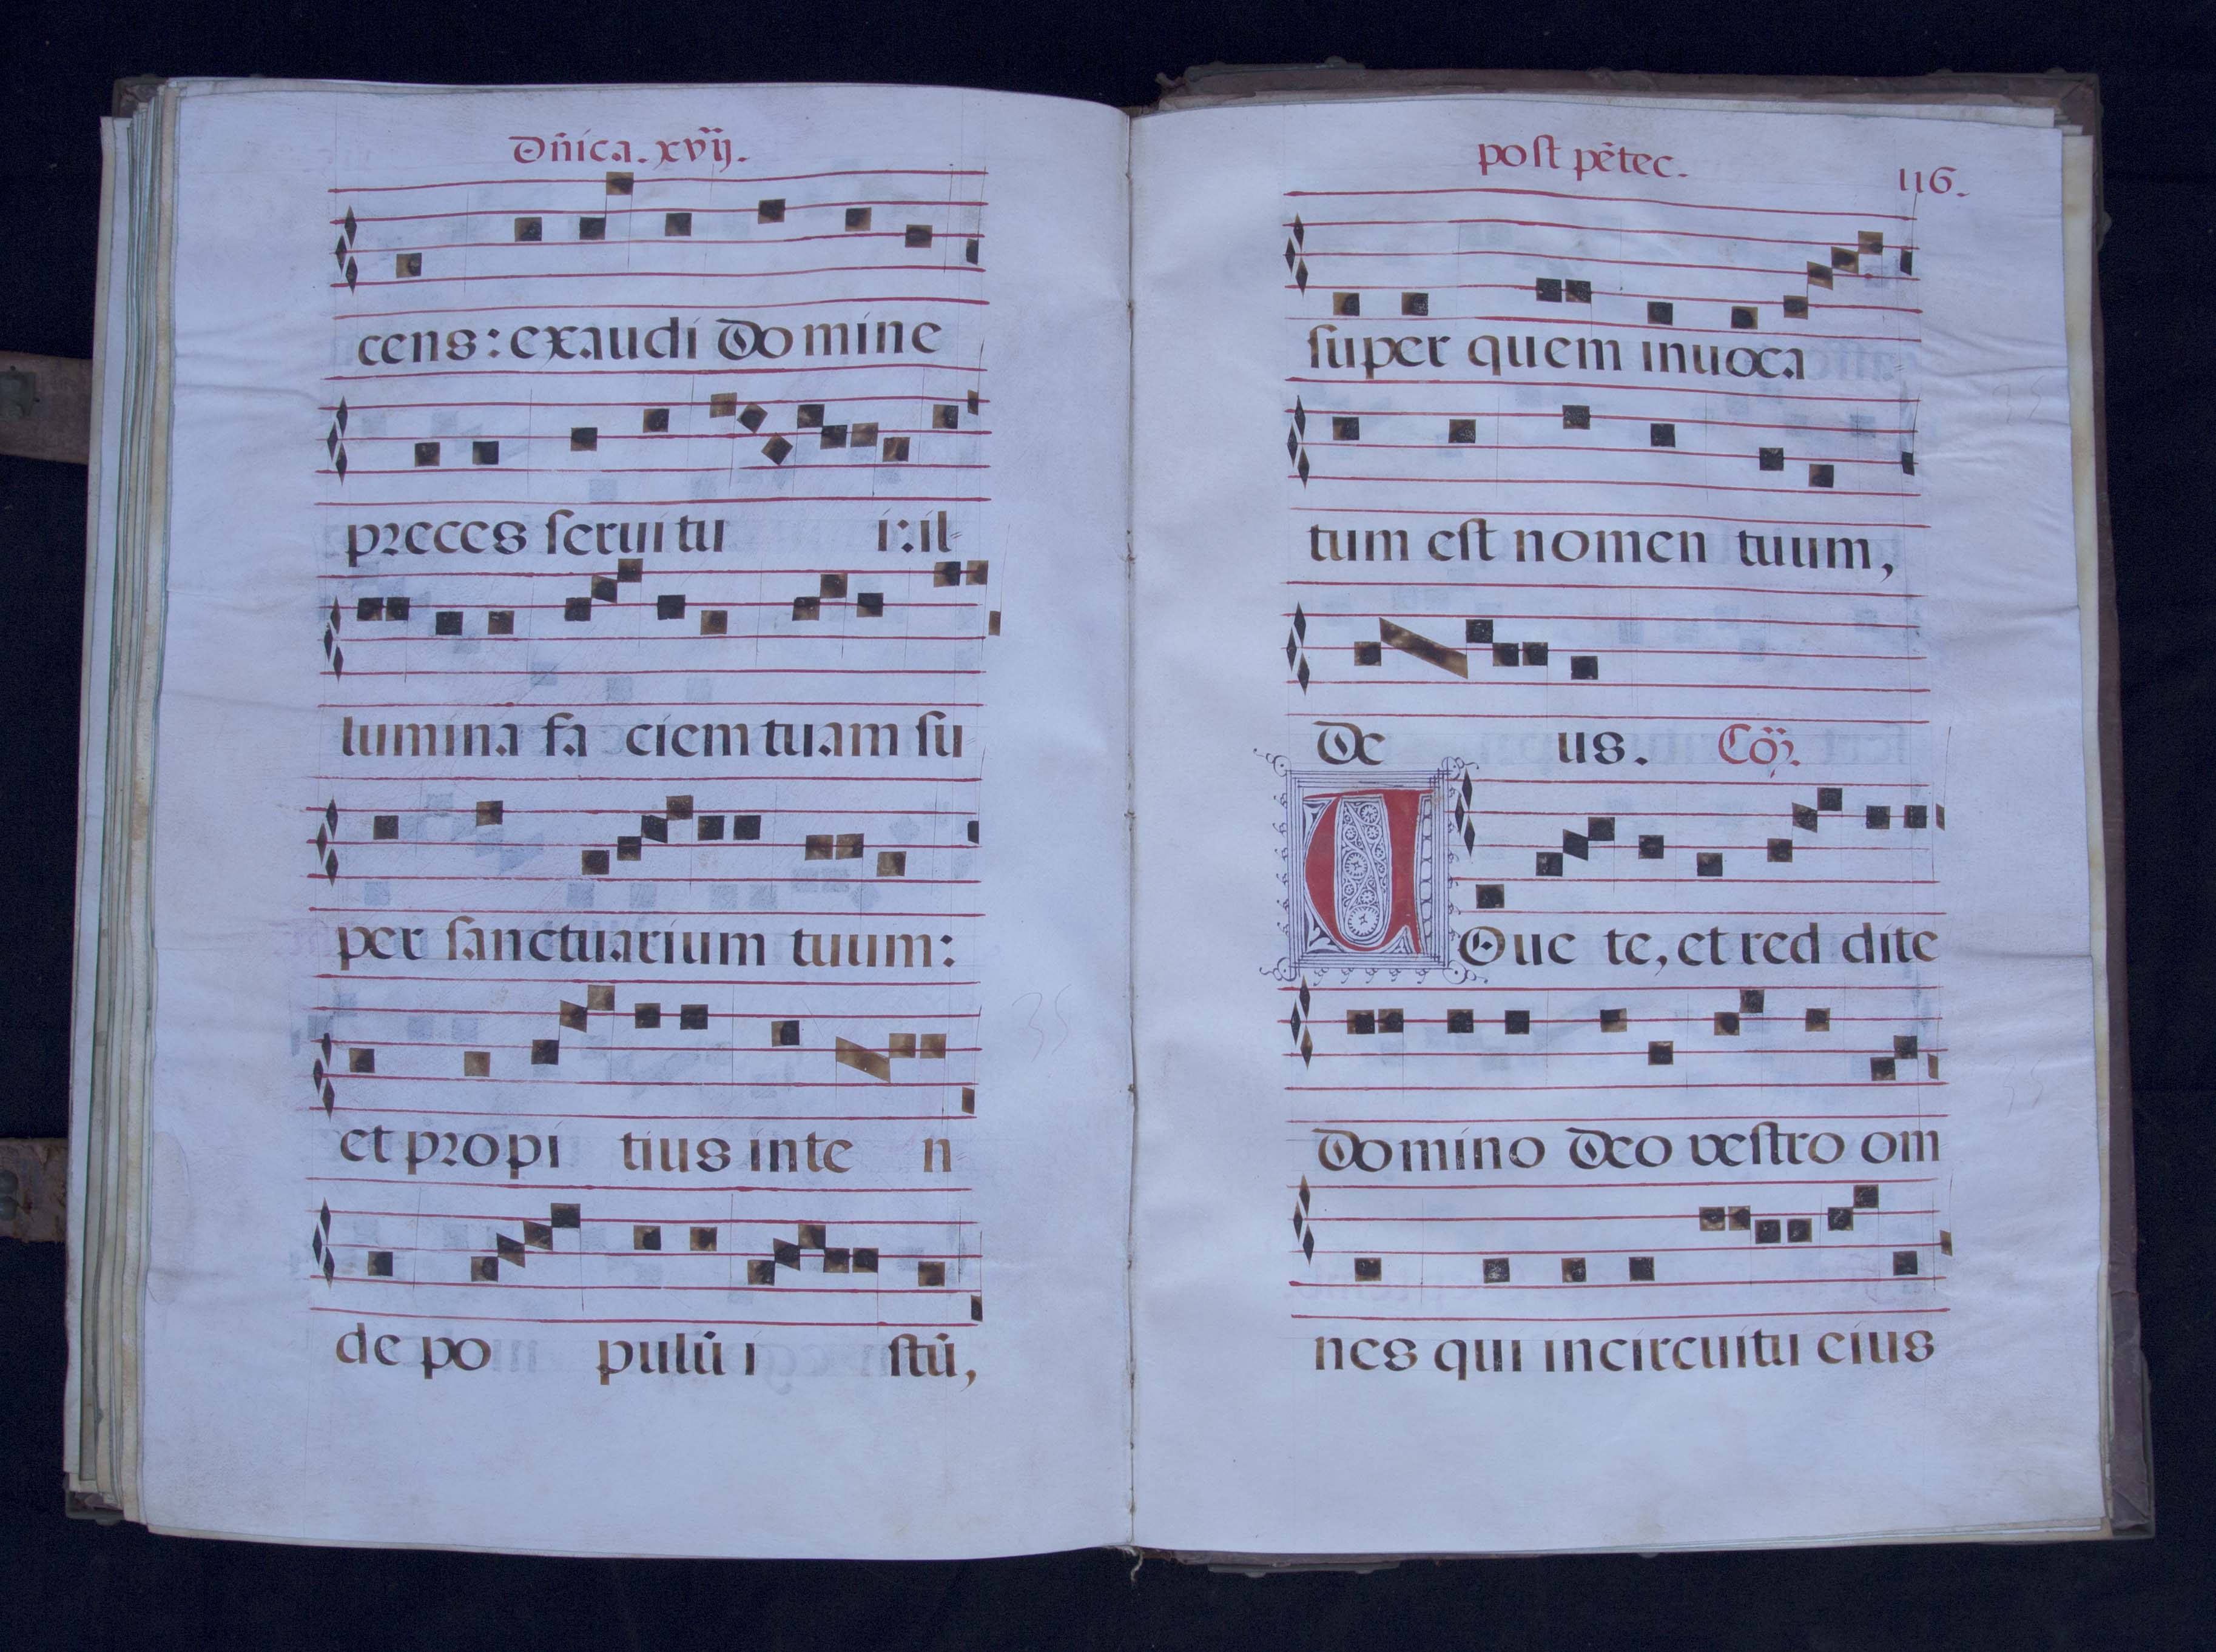 Dñica. xvij.
cens: exaudi Domine
preces serui tu i: il-
lumina fa ciem tuam su
per sanctuarium tuum:
et propi tius inte n
de po pulū i stū,
post pētec. 116.
super quem inuoca
tum est nomen tuum,
De us. Cō.
VOue te, et red dite
Domino Deo vestro om
nes qui in circuitu eius